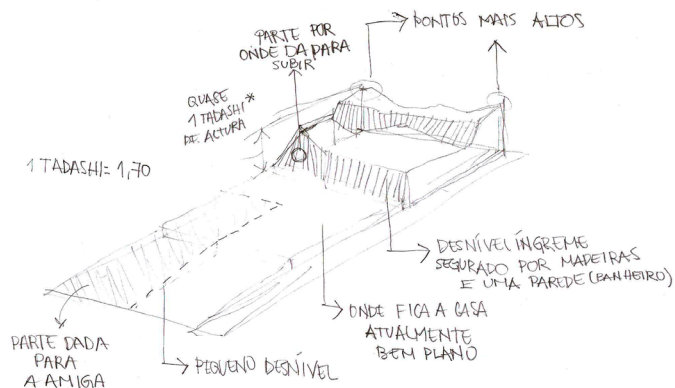 PONTOS MAIS ALTOS
PARTE POR
ONDE DÁ PARA
SUBIR
QUASE
1 TADASHI*
DE ALTURA
1 TADASHI= 1,70
DESNÍVEL ÍNGREME
SEGURADO POR MADEIRAS
E UMA PAREDE (BANHEIRO)
ONDE FICA A CASA
ATUALMENTE
BEM PLANO
PARTE DADA
PARA
A AMIGA
PEQUENO DESNÍVEL